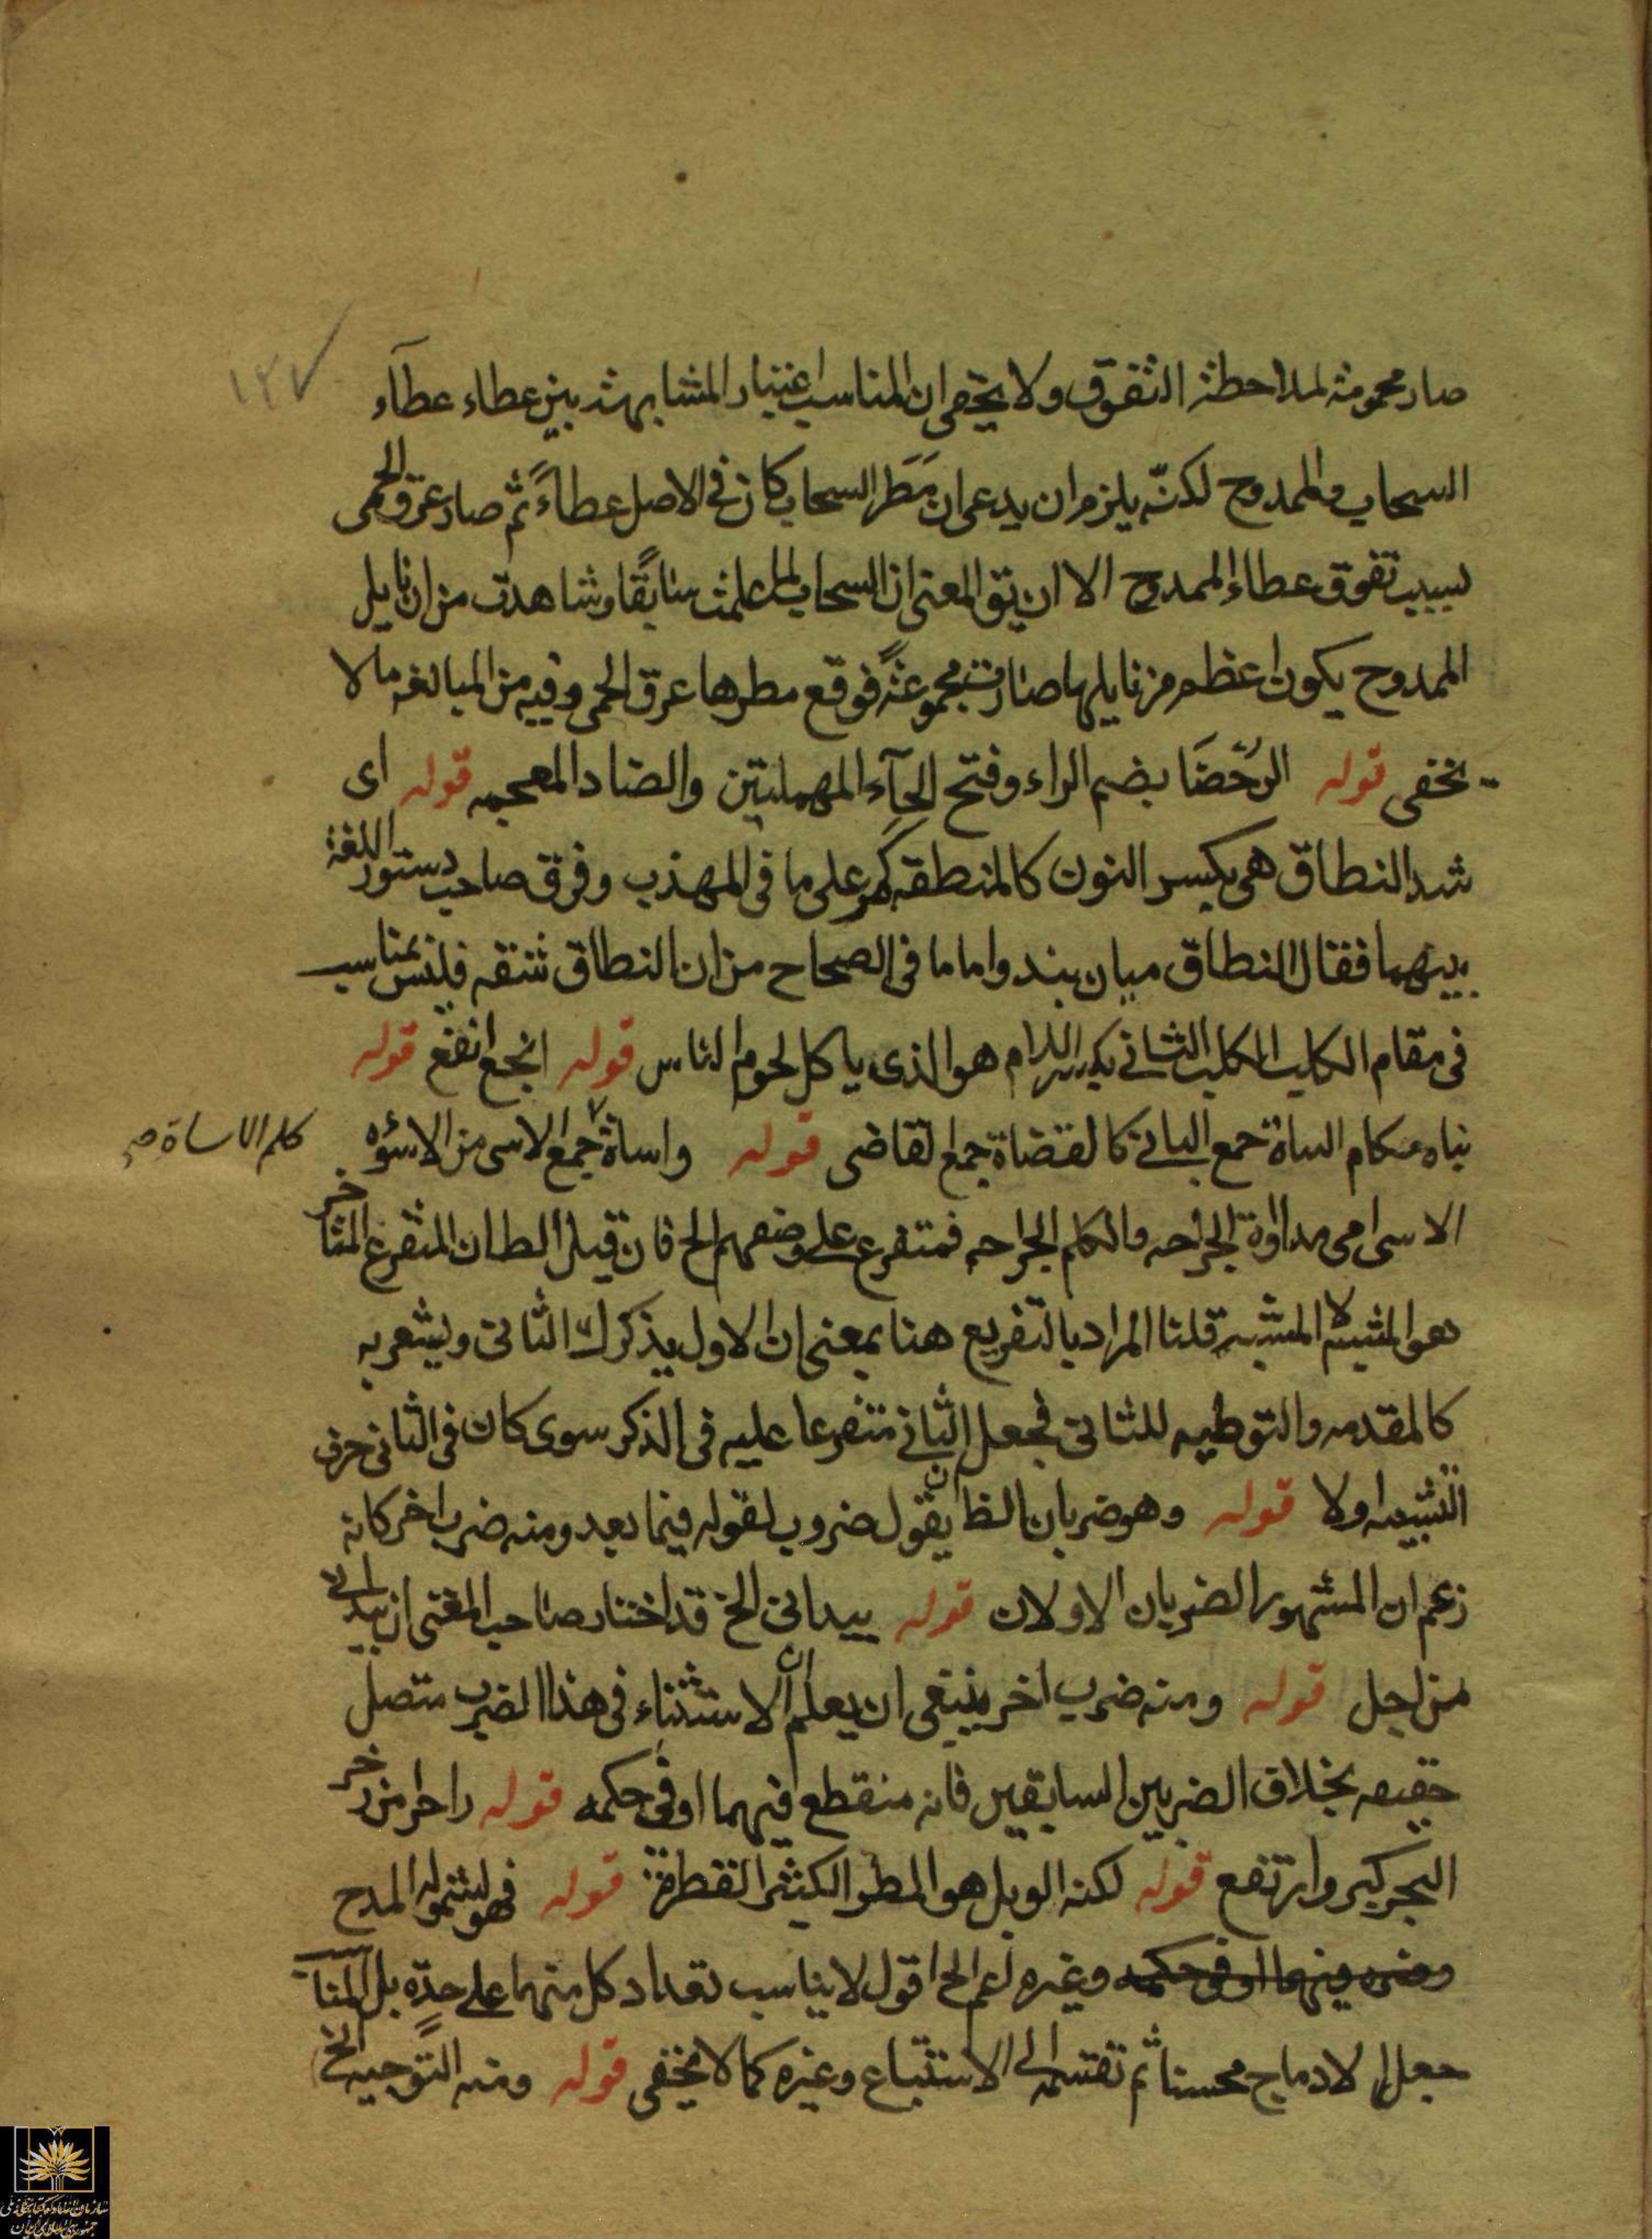 ١٢٧
صار محمومة لملاحظة التفوق ولا يخفى ان المناسب اعتبار المشابهة بين عطاء عطآء
السحاب والممدوح لكنّه يلزم ان يدعى ان مَطَر السحاب كان فى الاصل عطاءً ثم صار عرق الحمى
لسبب تفوق عطاء الممدوح الا ان يق المعنى ان السحاب لما علمت سابقًا وشاهدت من ان نايل
الممدوح يكون اعظم من نايلها صارت مجموعةً فوقع مطرها عرق الحمى وفيه من المبالغه ما لا
يخفى قوله الرُحَضَا بضم الراء وفتح الحآء المهملتين والضاد المعجمه قوله اى
شد النطاق هى بكسر النون كالمنطقه كمر على ما فى المهذب وفرق صاحب دستور اللغة
بينهما فقال النطاق ميان بند واما ما فى الصحاح من ان النطاق شقه فليس بمناسب
فى مقام الكلب الكلب الثانى بكسر اللام هو الذى ياكل لحوم الناس قوله انجع انفع قوله
بناه مكام البناة جمع البانى كالقضاة جمع القاضى قوله واساة جمع الاسى من الاسؤه
كلم الاساة صح
الاسى اى مداواة الجراحه والكلم الجراحه فمتفرع على وصفهم الخ فان قيل الظان المتفرع المتاخر
هو المشبه لا المشبه به قلنا المراد بالتفريع هنا بمعنى ان الاول يذكرك الثانى ويشعر به
كالمقدمه والتوطيه للثانى فجعل الثانى متفرعا عليه فى الذكر سوى كان فى الثانى حرف
التشبيه اولا قوله وهو ضربان الظا ان يقول ضروب لقوله فيما بعد ومنه ضرب اخر كانه
زعم ان المشهور الضربان الاولان قوله بيدانى الخ قد اختار صاحب المغنى ان بيد انى
من اجل قوله ومنه ضرب اخر ينبغى ان يعلم ان الاستثناء فى هذا الضرب متصل
حقيقه بخلاف الضربين السابقين فانه منقطع فيهما او فى حكمه قوله زاخرا من زخر
البحر كبر وارتفع قوله لكنه الوبل هو المطر الكثير القطرة قوله فهو لشموله المدح
وغيره اعم الخ اقول لا يناسب تعداد كل منهما على حدّه بل المناسب
جعل الادماج محسنا ثم تقسمه الى الاستتباع وغيره كما لا يخفى قوله ومنه التوجيه الخ